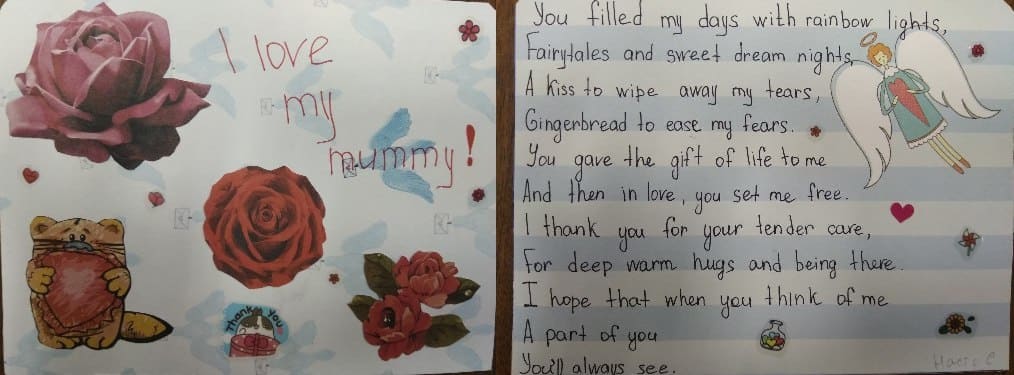 I love
my
mummy!
Thank you
You filled my days with rainbow lights,
Fairytales and sweet dream nights,
A Kiss to wipe away my tears,
Gingerbread to ease my fears.
You gave the gift of life to me
And then in love, you set me free.
I thank you for your tender care,
For deep warm hugs and being there.
I hope that when you think of me
A part of you
You'll always see.